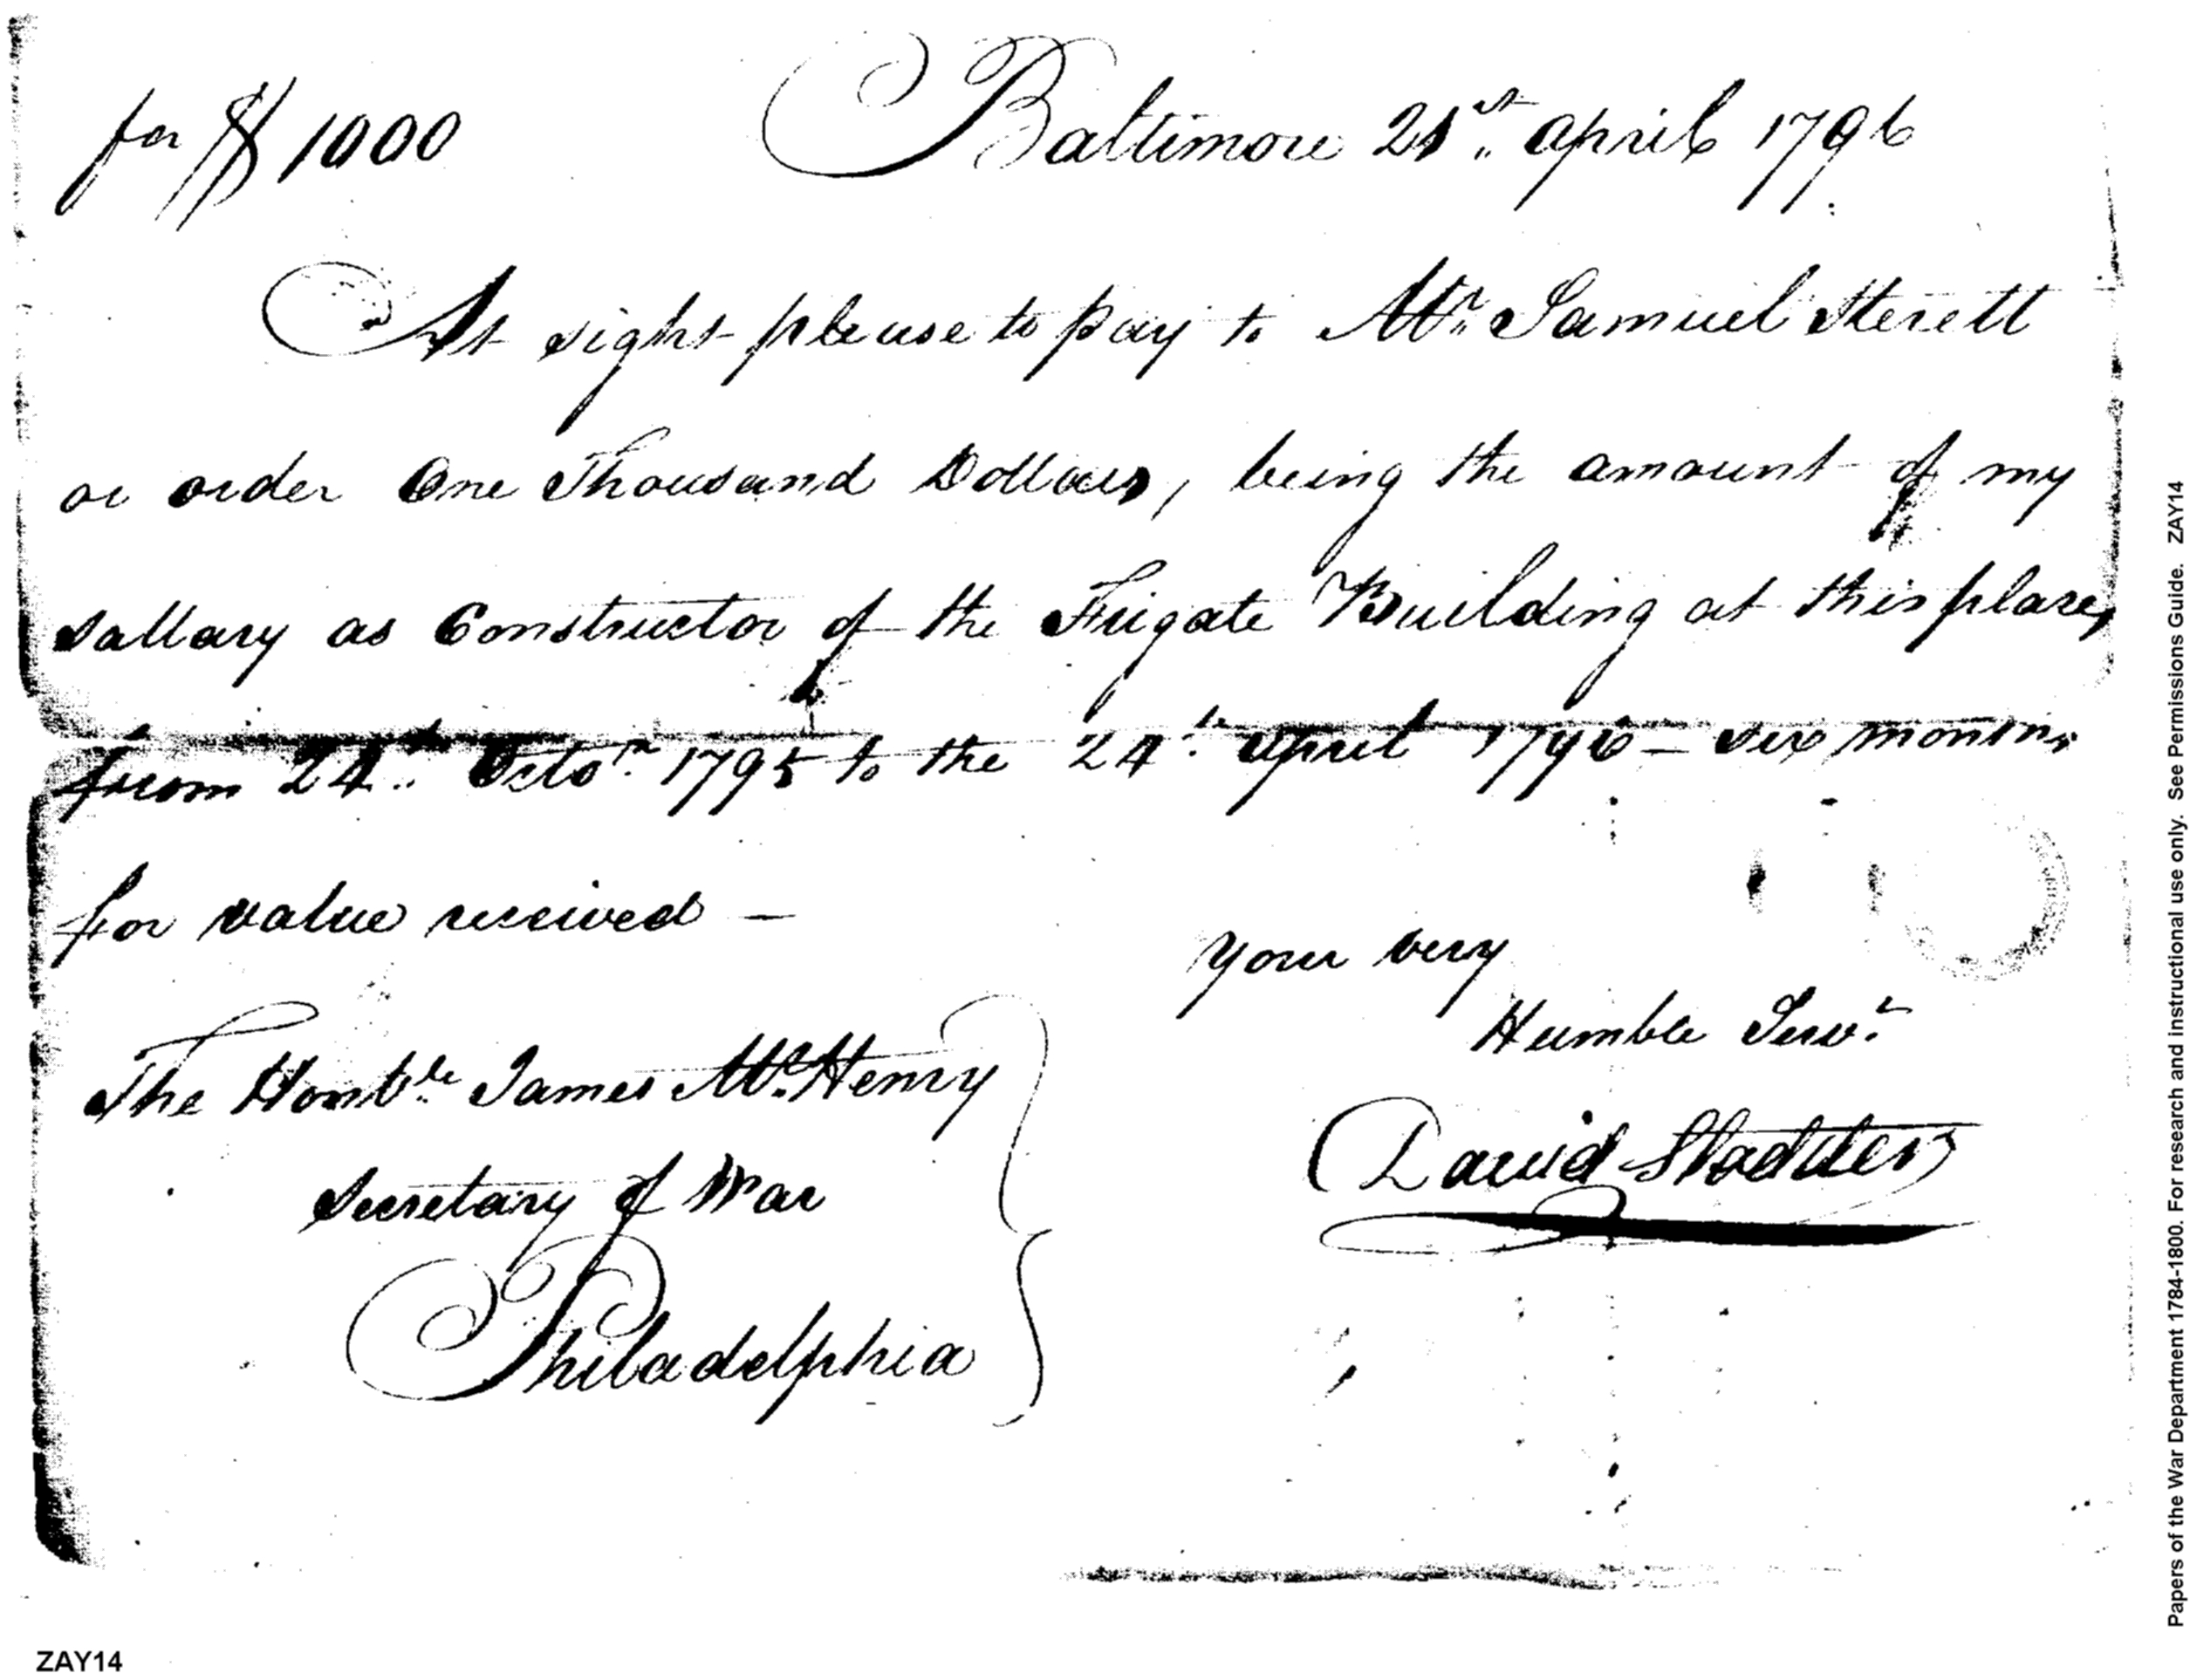 for $1000 Baltimore 21st April 1796
At sight please to pay to Mr. Samuel Sterett
or order One Thousand Dollars, being the amount of my
sallary as Constructor of the Frigate Building at this place,
from 24th. Octor. 1795 to the 24th. April 1796 – six months
for value received —
your very
Humble Servt.
David Stodder
The Honble. James McHenry
Secretary of War
Philadelphia
ZAY14
Papers of the War Department 1784-1800. For research and instructional use only. See Permissions Guide. ZAY14